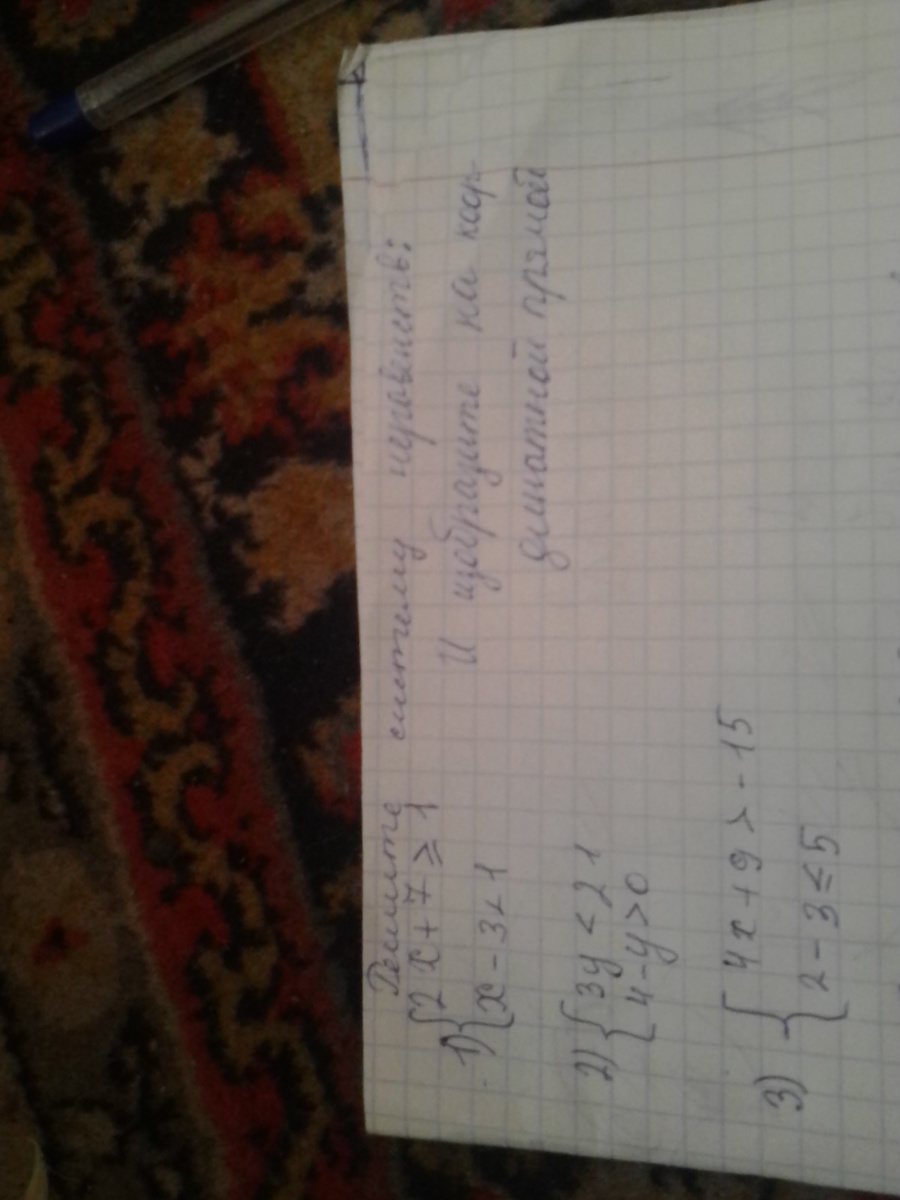 Решите систему неравенств:
И изобразите на коор-
динатной прямой
1) { 2x + 7 ≥ 1
x - 3 < 1
2) { 3y < 21
4 - y > 0
3) { 4x + 9 > - 15
2 - 3 ≤ 5